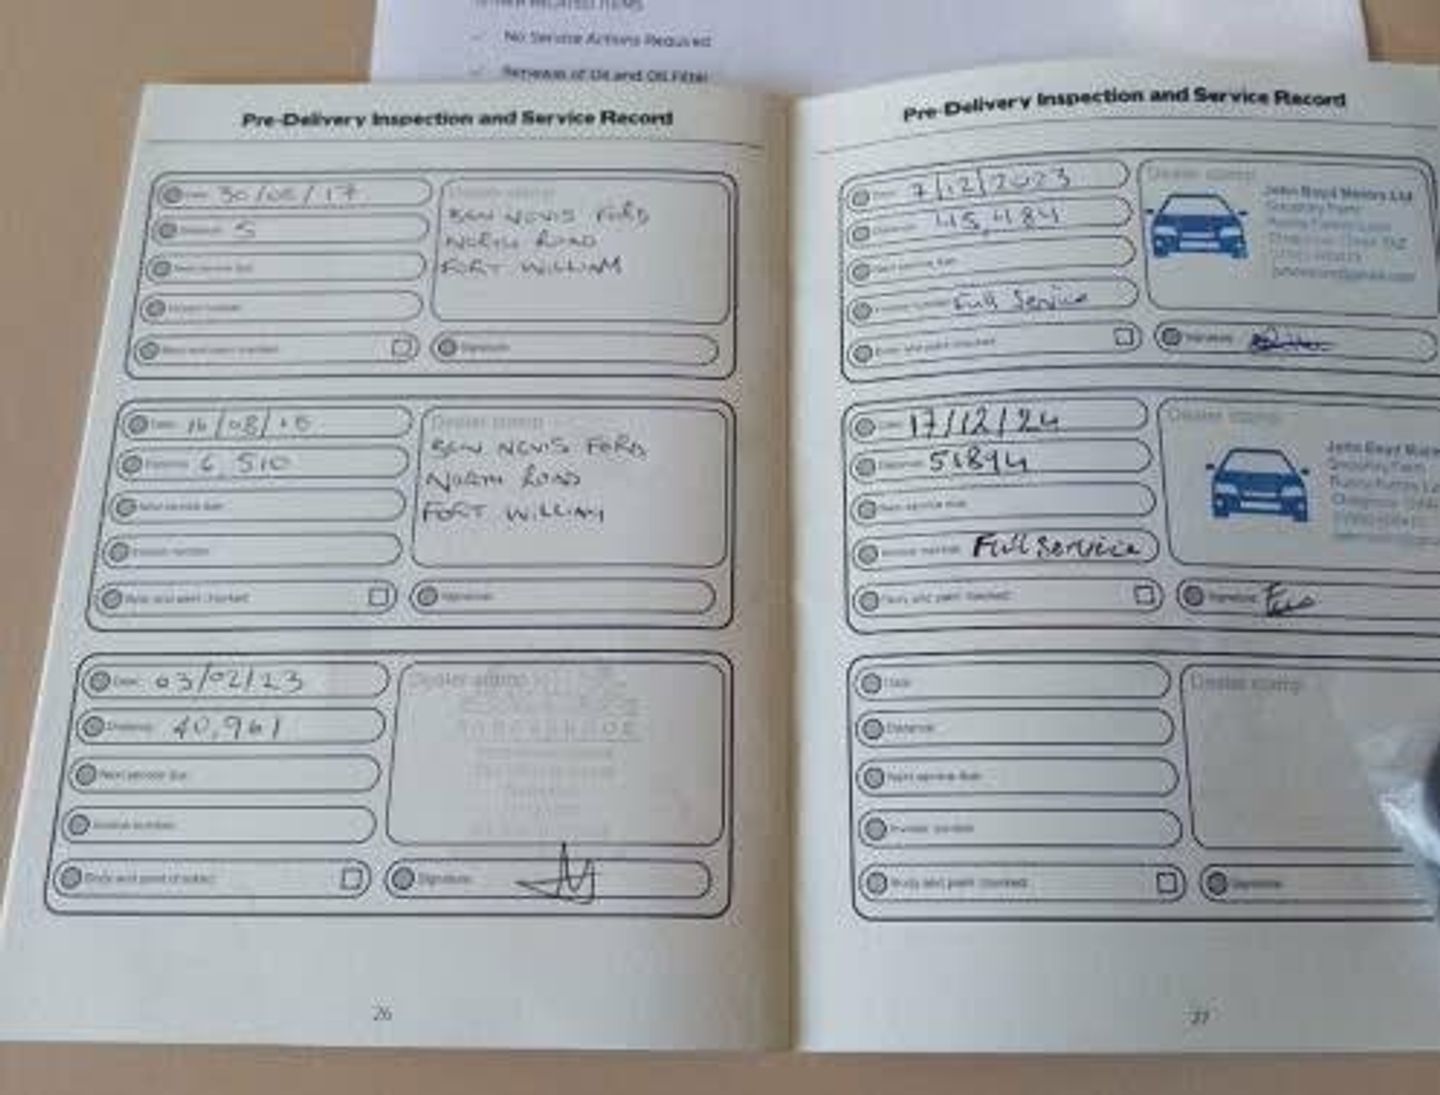 No Service Actions Required
Renewal of Oil and Oil Filter
Pre-Delivery Inspection and Service Record
Date: 30/08/17
Distance: 5
Next service due:
Invoice number:
Body and paint checked
Dealer stamp
BEN NEVIS FORD
NORTH ROAD
FORT WILLIAM
Signature:
Date: 16/08/18
Distance: 6,510
Next service due:
Invoice number:
Body and paint checked
Dealer stamp
BEN NEVIS FORD
NORTH ROAD
FORT WILLIAM
Signature:
Date: 03/02/23
Distance: 40,961
Next service due:
Invoice number:
Body and paint checked
Dealer stamp
Signature:
26
Pre-Delivery Inspection and Service Record
Date: 7/12/2023
Distance: 45,484
Next service due:
Invoice number: Full Service
Body and paint checked
Dealer stamp
John Boyd Motors Ltd
Signature:
Date: 17/12/24
Distance: 51894
Next service due:
Invoice number: Full Service
Body and paint checked
Dealer stamp
John Boyd
Signature:
Date:
Distance:
Next service due:
Invoice number:
Body and paint checked
Dealer stamp
Signature:
27